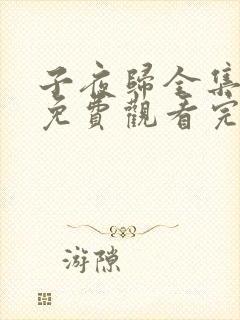 子夜歸全集
免費觀看完
游隙